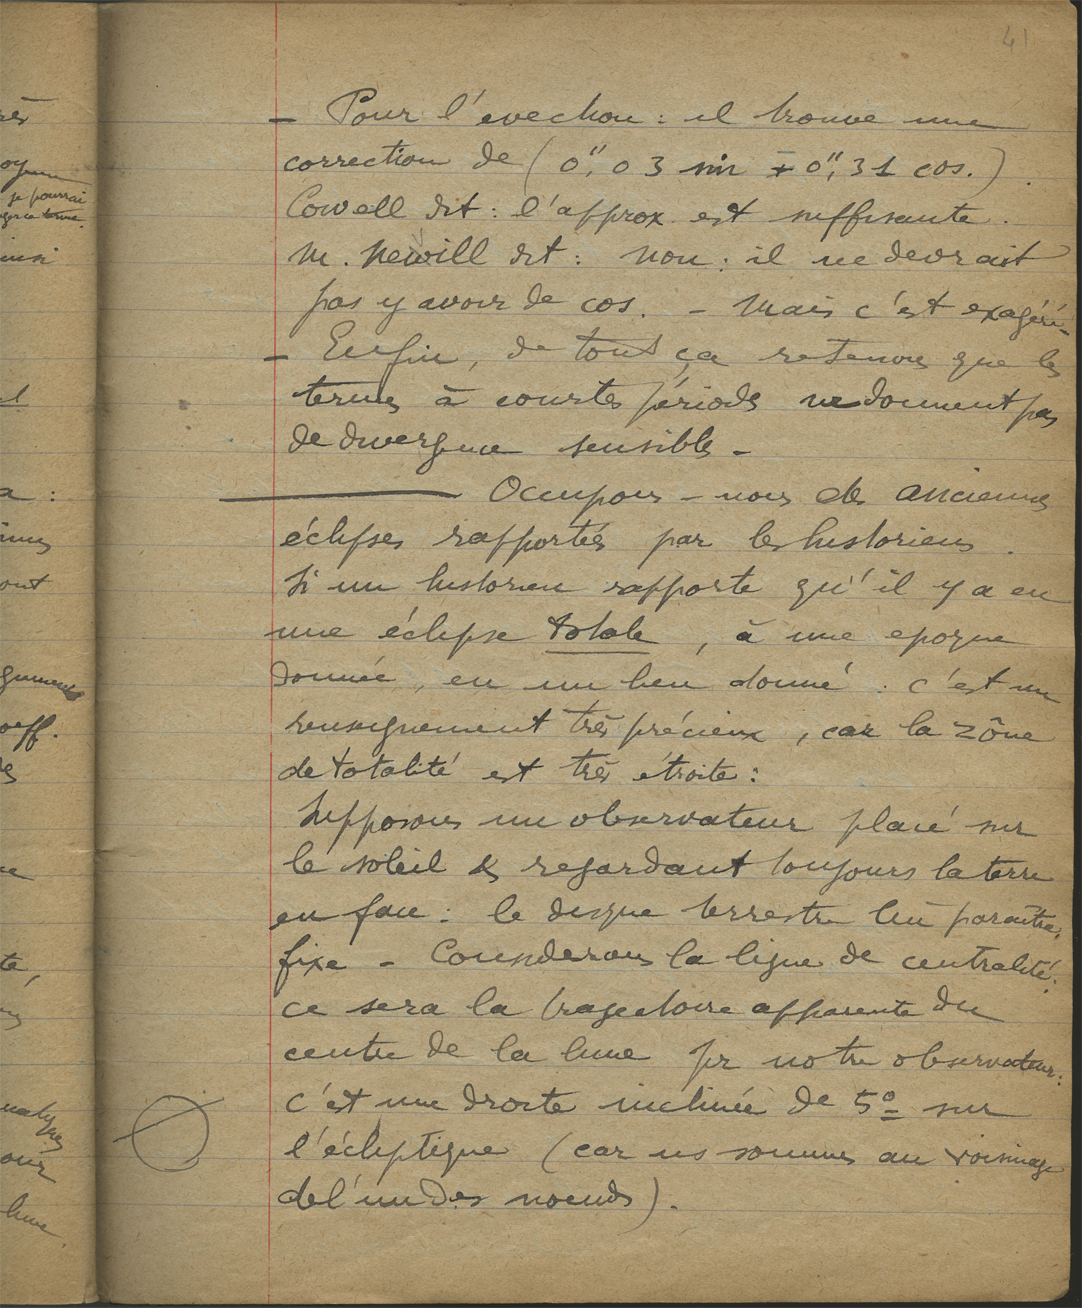 41
– Pour l'evection : il trouve une
correction de (0",03 sin + 0",31 cos.).
Cowell dit : l'approx. est suffisante.
M. Newill dit : Non : il ne devrait
pas y avoir de cos. – Mais c'est exagéré.
– Enfin, de tout ça retenons que les
termes à courtes périodes ne donnent pas
de divergence sensible –
Occupons-nous des anciennes
éclipses rapportées par les historiens.
Si un historien rapporte qu'il y a eu
une éclipse totale, à une epoque
donnée, en un lieu donné : c'est un
renseignement très précieux, car la zône
de totalité est très étroite :
Supposons un observateur placé sur
le soleil & regardant toujours la terre
en face : le disque terrestre lui paraîtra
fixe – Considerons la ligne de centralité :
ce sera la trajectoire apparente du
centre de la lune pr notre observateur :
c'est une droite inclinée de 5° sur
l'écliptique (car ns sommes au voisinage
de l'un des noeuds).
très
je pourrai
ainsi
a :
ont
oeff.
té,
our
lune.